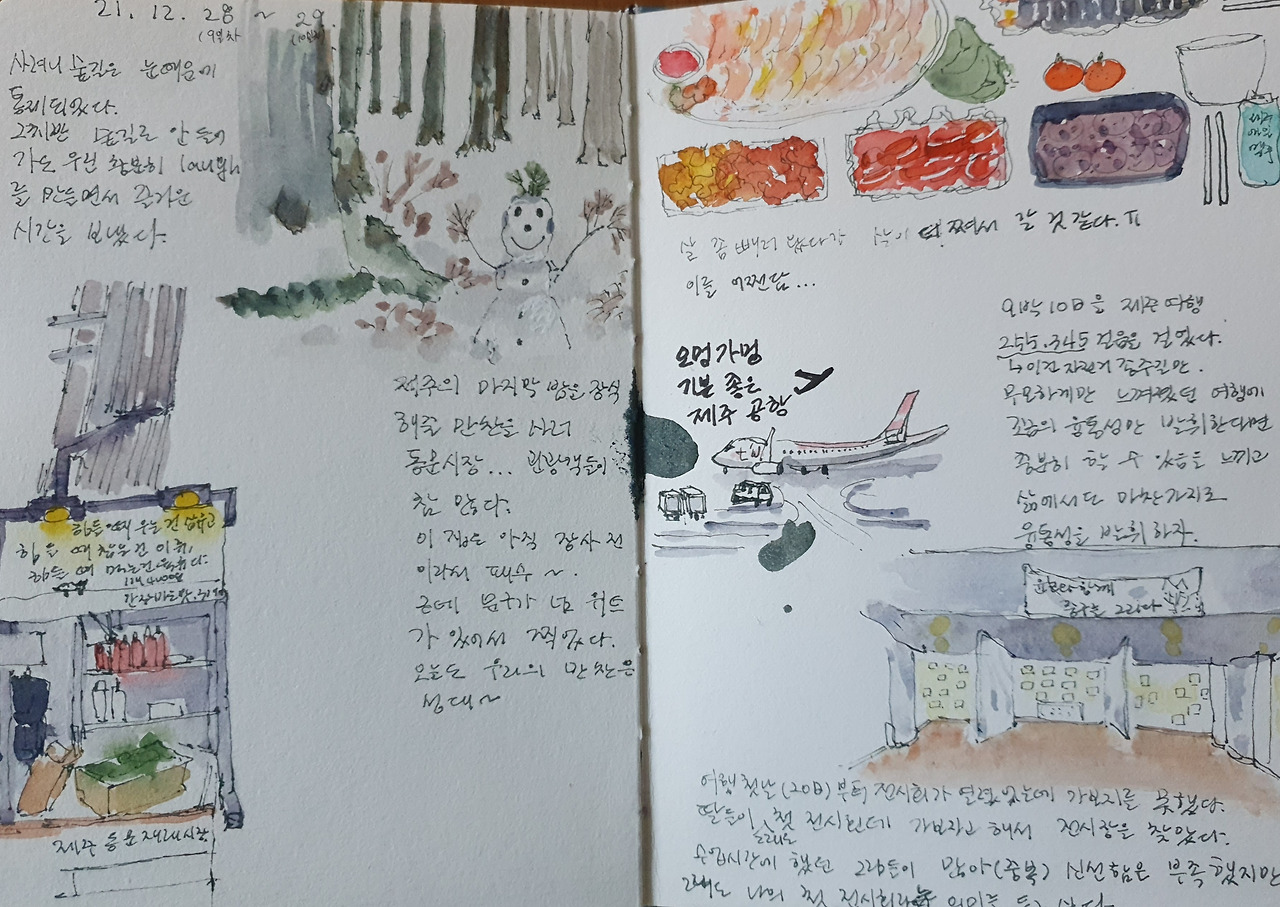 21. 12. 28 ~ 29.
(9일차
사려니 숲길은 눈 때문에
통제되었다.
그치만 숲길로 안 들어
가도 우린 충분히
를 만들면서 즐거운
시간을 보냈다.
제주의 마지막 밤을 장식
해줄 만찬을 사러
동문시장... 관광객들이
참 많다.
이 집은 아직 장사 전
이라서 패쓰 ~.
근데 문구가 넘 위트
가 있어서 찍었다.
오늘도 우리의 만찬은
성대~
힘들 때 우는 건 삼류고
힘들 때 참는 건 이류,
힘들 때 먹는건 육류다.
제주 동문재래시장
제주
맥주
살 좀 빼러 왔다가 살이 더 쪄서 갈 것 같다. ㅠ
이를 어쩐담...
9박 10일을 제주 여행
255,345 걸음을 걸었다.
무모하게만 느껴졌던 여행에
조금의 융통성만 발휘한다면
충분히 할 수 있음을 느끼고
삶에서도 마찬가지로
융통성을 발휘하자.
오며가며
기분 좋은
제주 공항
t'w
함께
그리다
여행 첫날(20일)부터 전시회가 열렸었는데 가보지를 못했다.
딸들이 첫 전시회인데 가보자고 해서 전시장을 찾았다.
수업시간에 했던 그림들이 많아(중복) 신선함은 부족했지만
그래도 나의 첫 전시회라 의미를